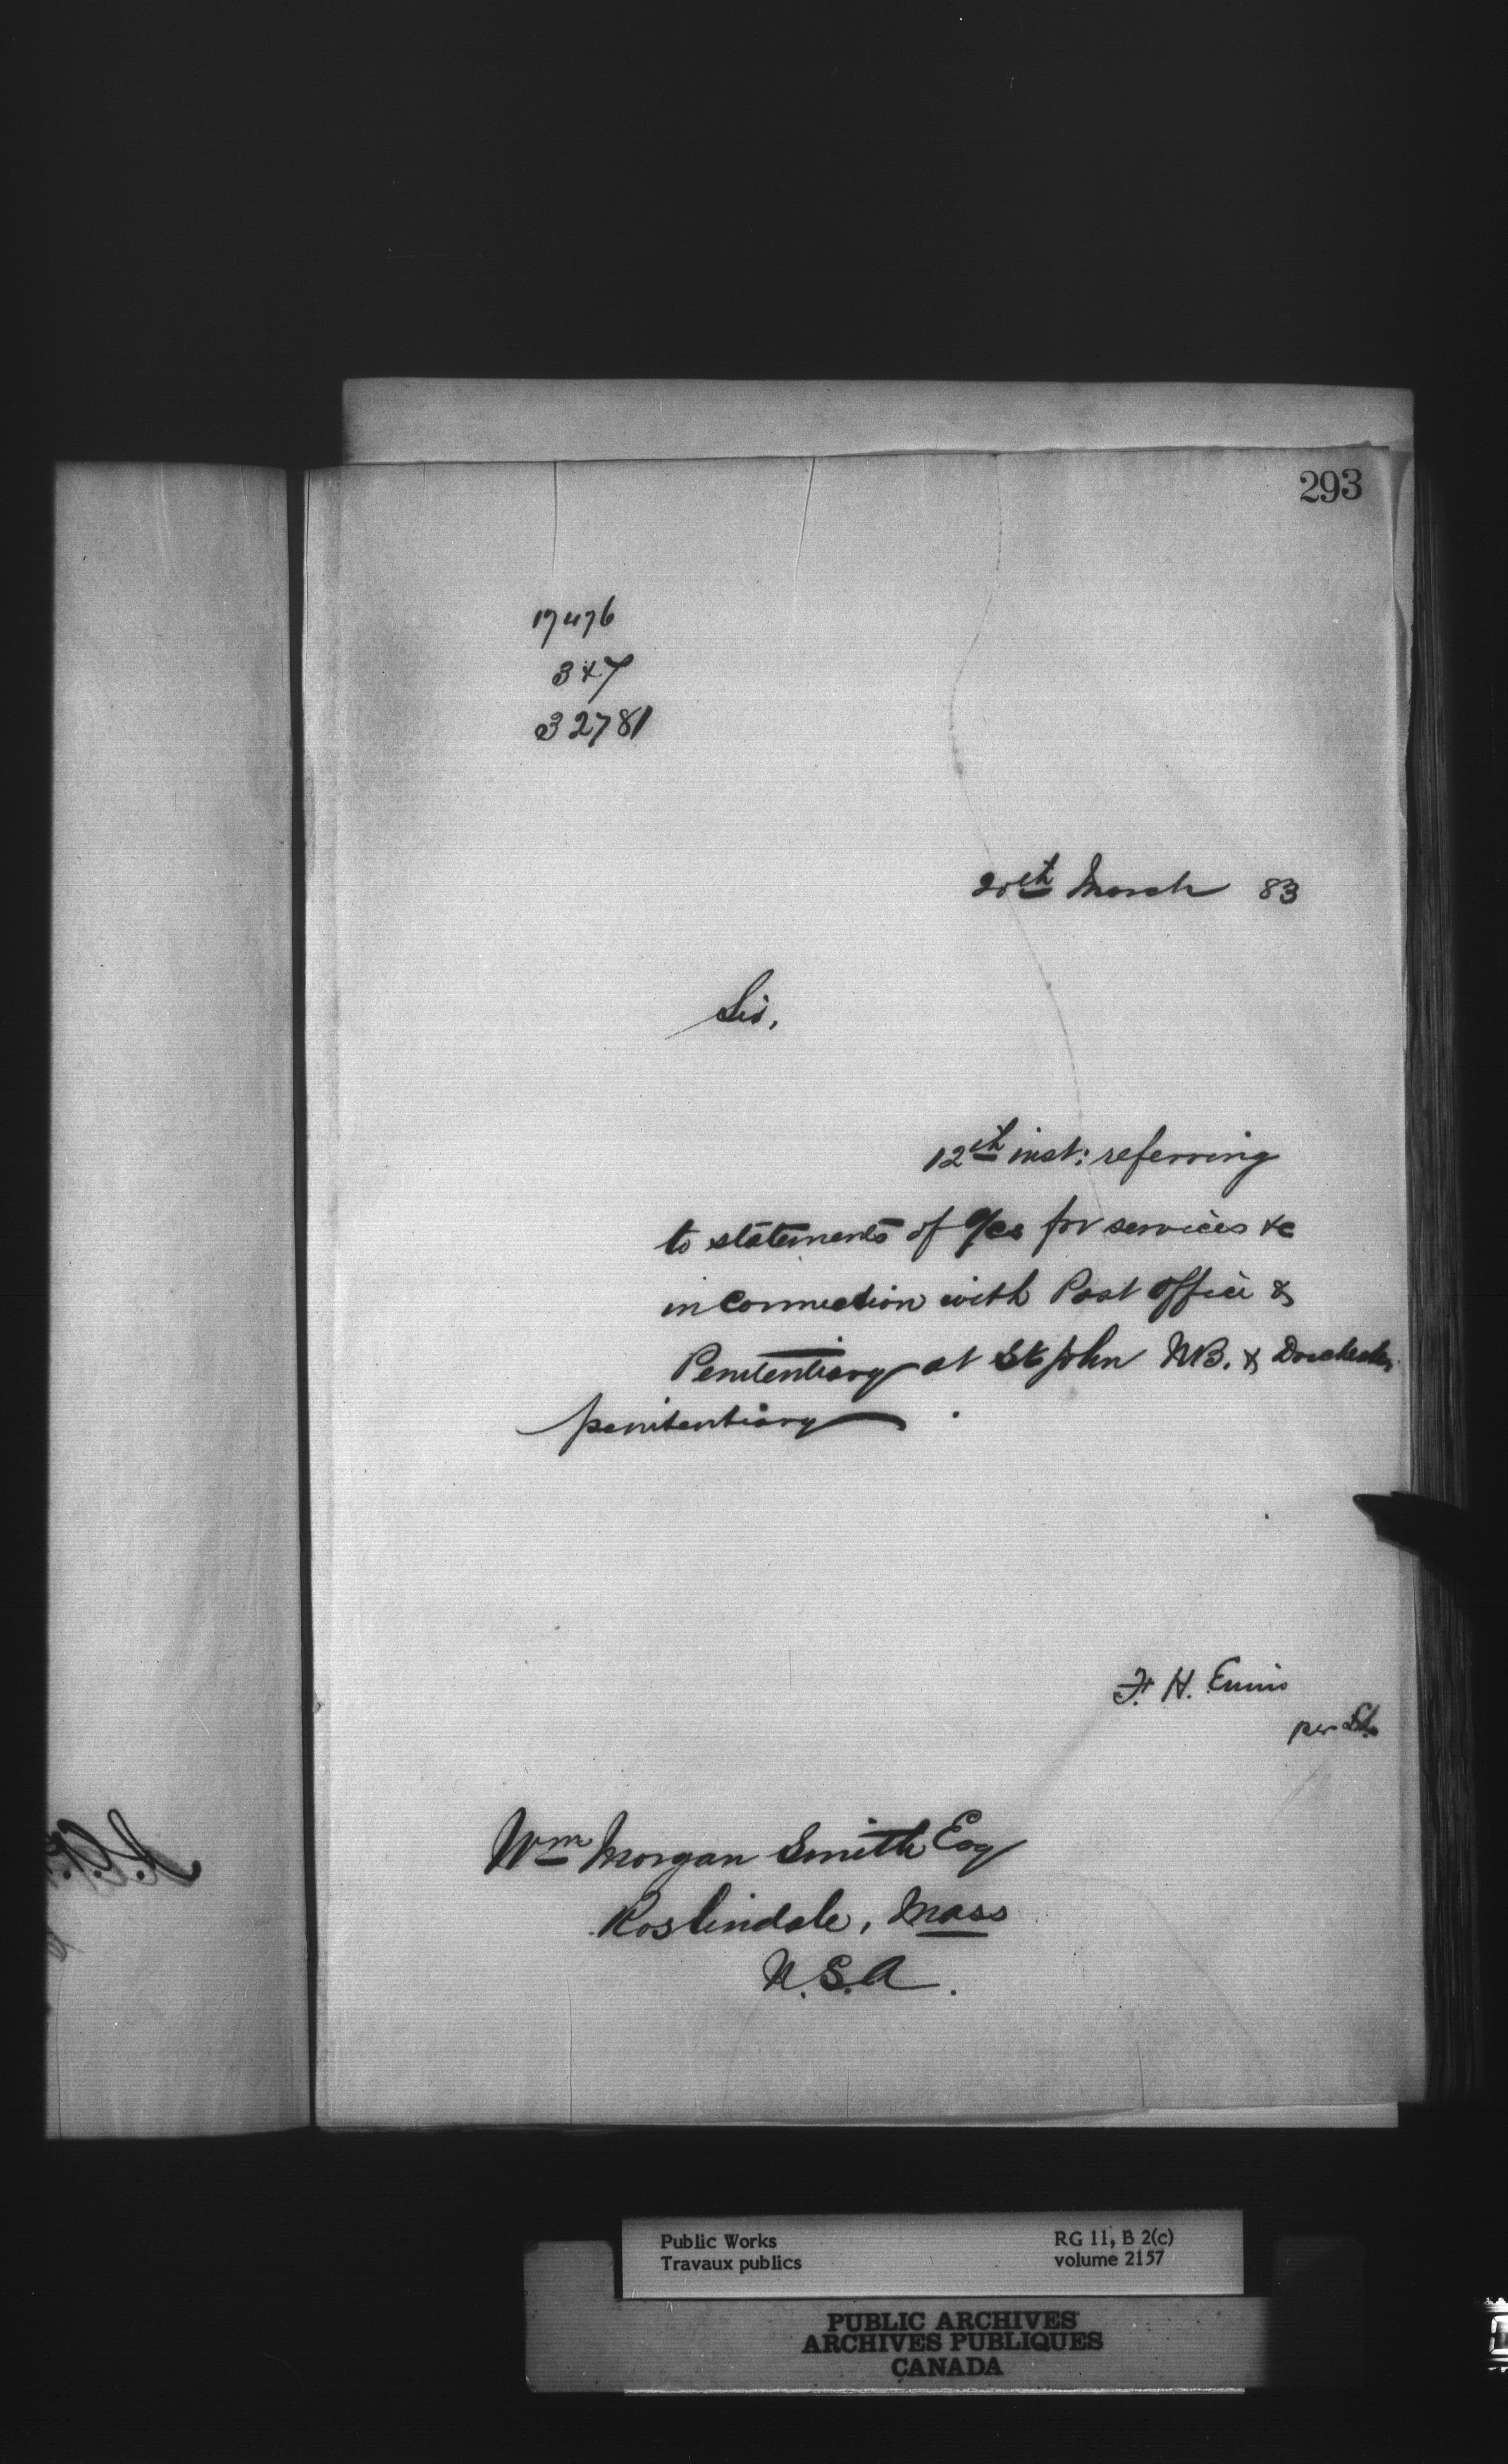 293
17476
347
32781
20th March 83
Sir,
12th inst: referring
to statements of a/cs for services &c
in connection with Post Office &
Penitentiary at St John N.B. & Dorchester
penitentiary.
F. H. Ennis
per
Wm Morgan Smith Esq
Roslindale, Mass
U.S.A.
Public Works
Travaux publics
RG 11, B 2(c)
volume 2157
PUBLIC ARCHIVES
ARCHIVES PUBLIQUES
CANADA